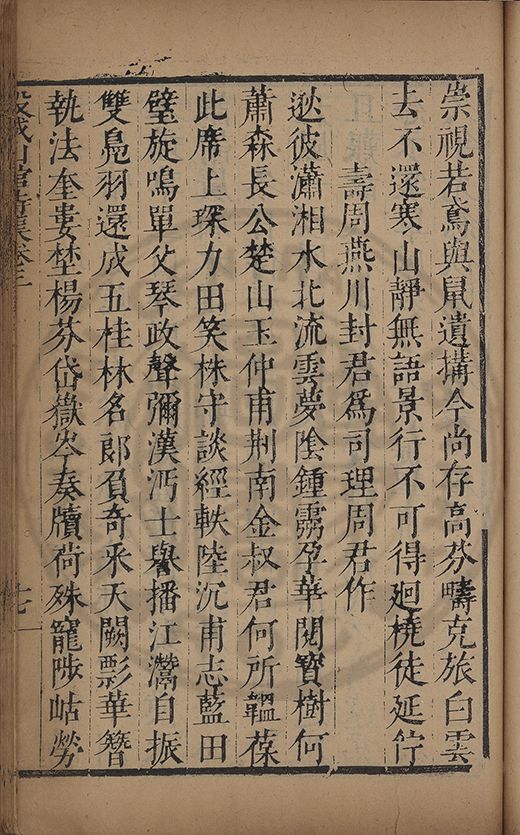 崇視若鳶與鼠遺搆今尚存高芬疇克旅白雲
去不還寒山靜無語景行不可得廻橈徒延佇
壽周燕川封君爲司理周君作
逖彼瀟湘水北流雲夢陰鍾靈孕華閥寶樹何
蕭森長公楚山玉仲甫荆南金叔君何所韞葆
此席上琛力田笑株守談經軼陸沉甫志藍田
璧旋鳴單父琴政聲彌漢沔士譽播江灊自振
雙鳧羽還成五桂林名郎負奇采天闕彯華簪
執法奎婁埜楊芬岱嶽岑奏牘荷殊寵陟岵勞